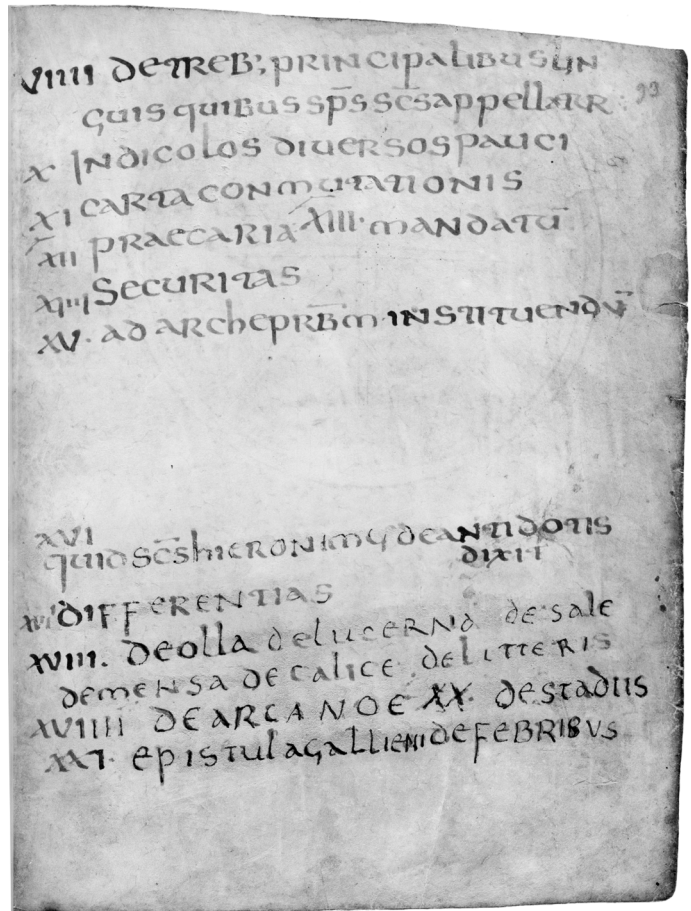 VIIII DE TREB; PRINCIPALIBUS LIN
GUIS QUIBUS SPS SCS APPELLATR
93
X INDICOLOS DIVERSOS PAUCI
XI CARTA CONMUTATIONIS
XII PRAECARIA XIII· MANDATŪ
XIIII SECURITAS
XV· AD ARCHEPRB̄M· INSTITUENDŪ
XVI
QUID SC̄S HIERONIMUS DE ANTIDOTIS
DIXIT
XVII DIFFERENTIAS
XVIII. DE OLLA DE LUCERNA DE SALE
DE MENSA DE CALICE DE LITTERIS
XVIIII DE ARCA NOE XX· DE STADIIS
XXI· EPISTULA GALLIENI DE FEBRIBUS